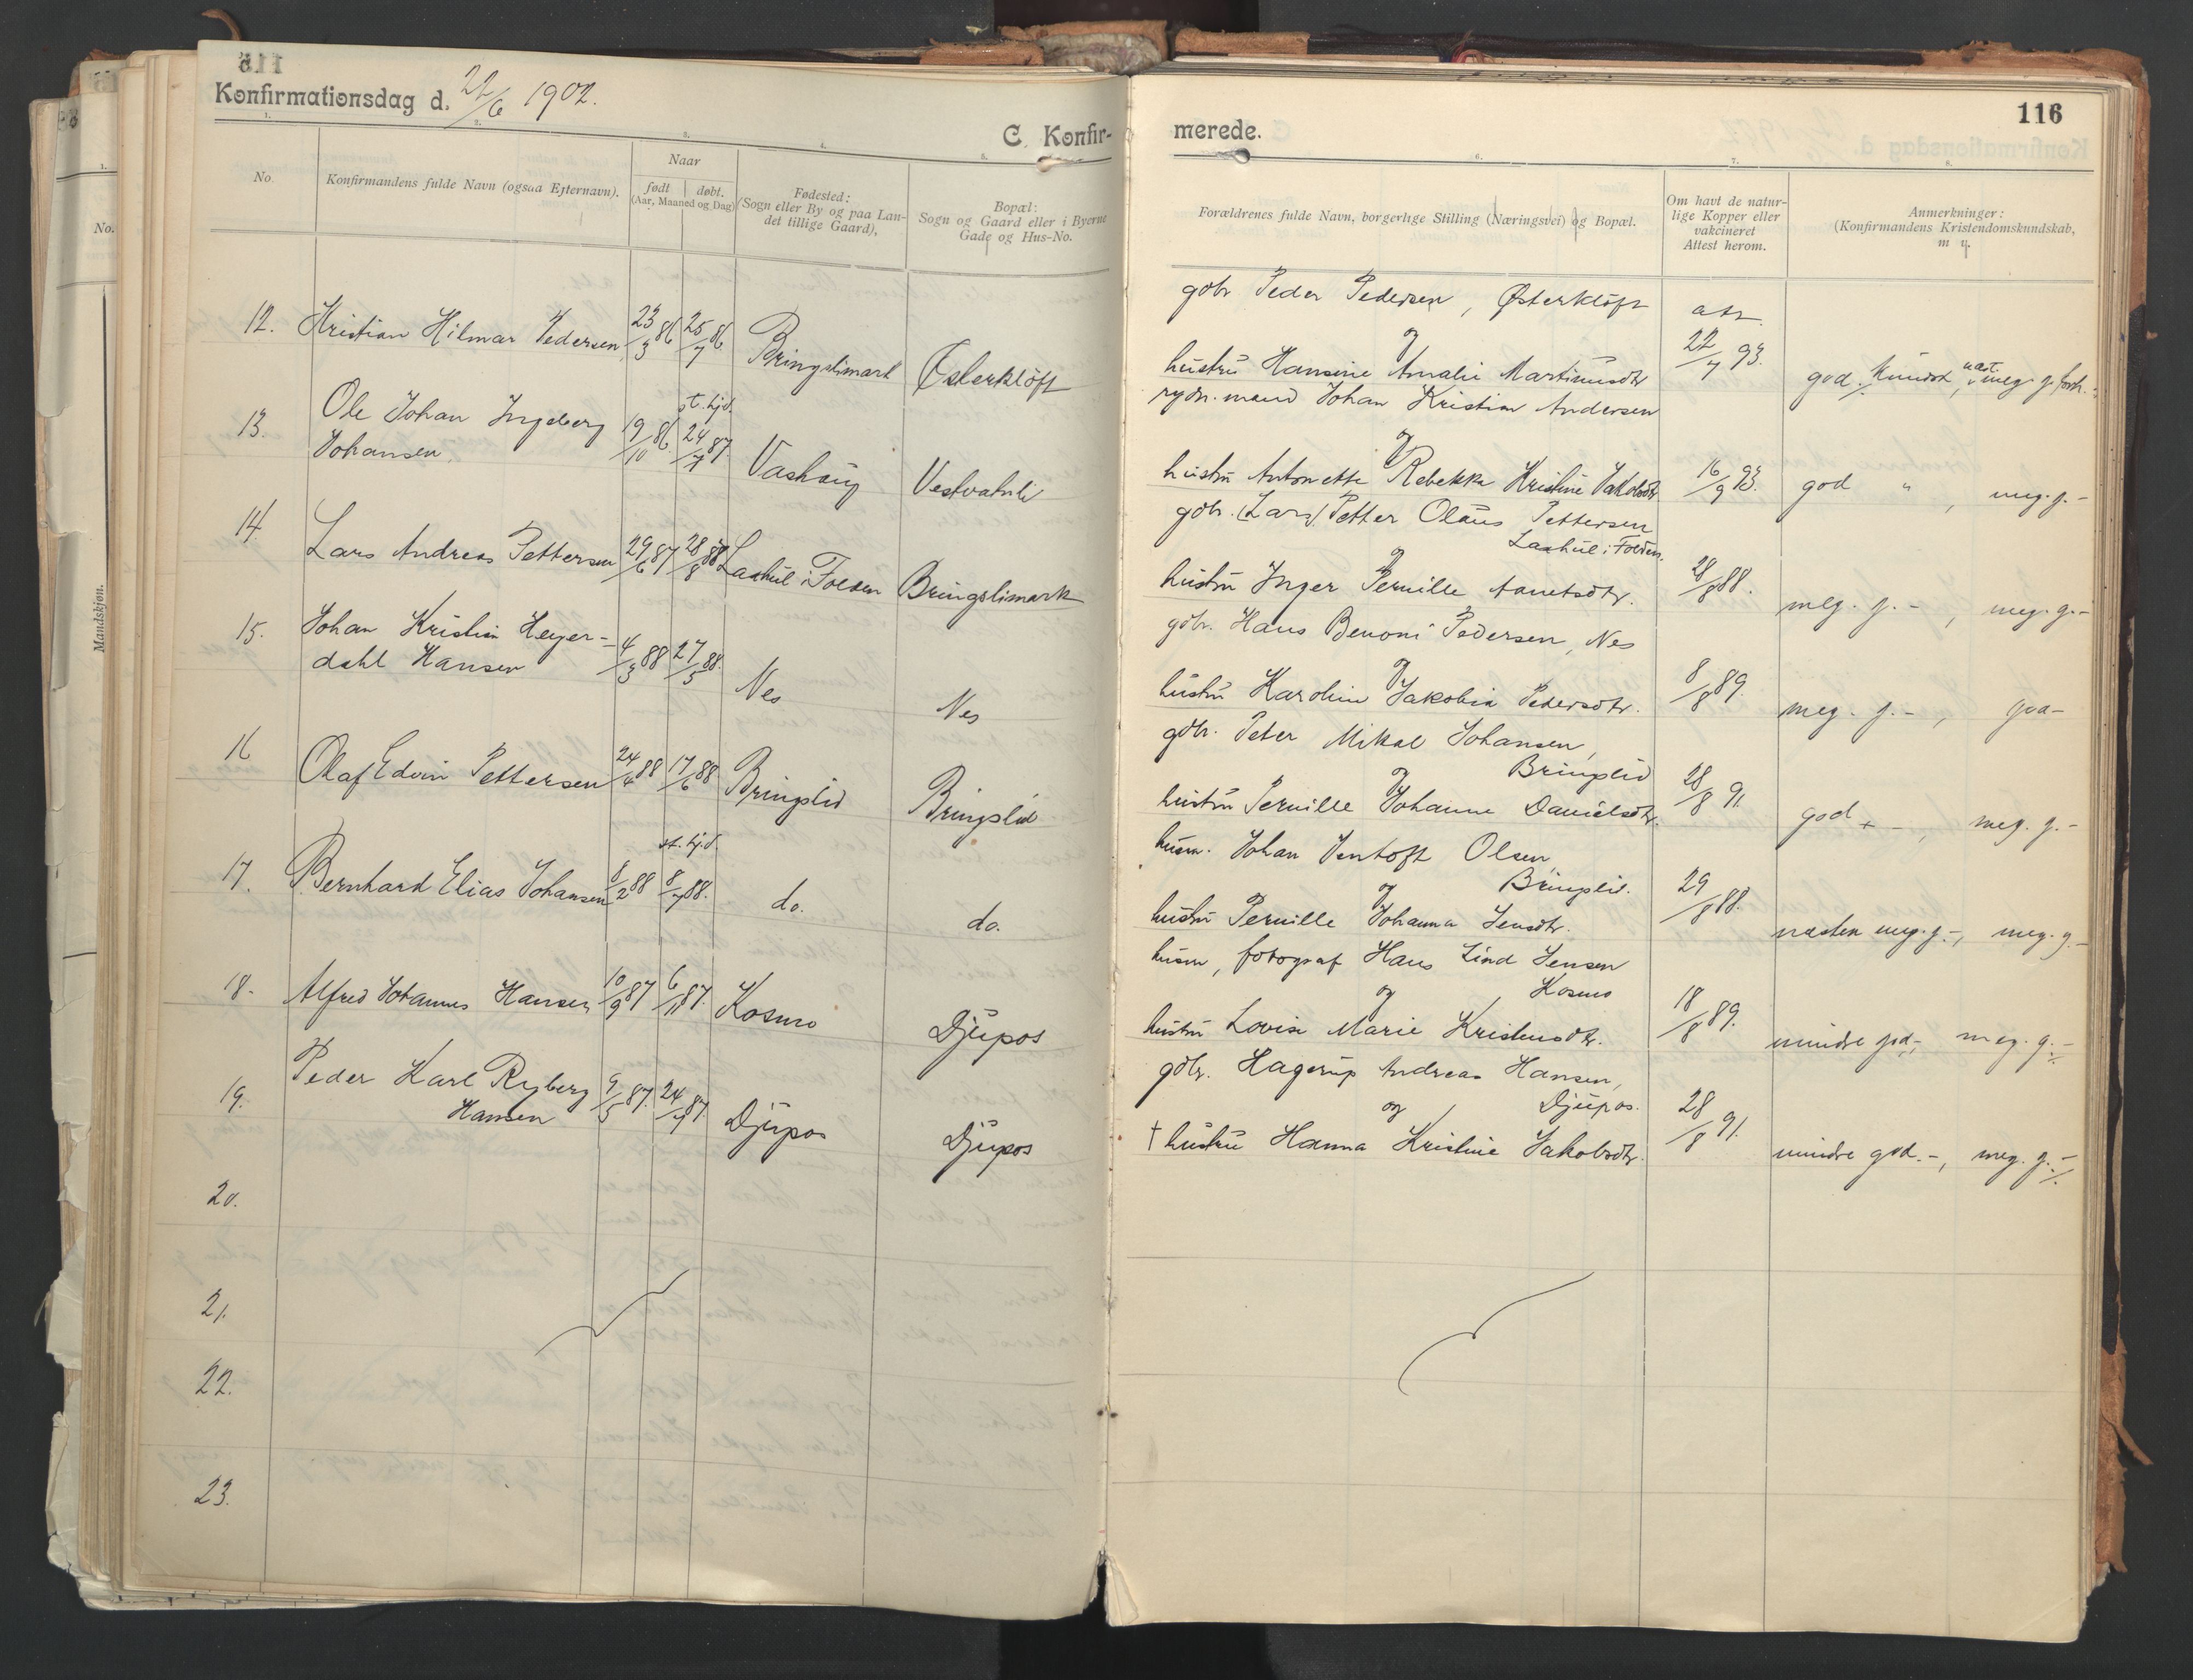 Konfirmationsdag d. 22/6 1902.
C. Konfir-
1. 2. 3. 4. 5.
No.
Konfirmandens fulde Navn (ogsaa Efternavn).
Naar
født
døbt.
(Aar, Maaned og Dag)
Fødested:
(Sogn eller By og paa Lan-
det tillige Gaard).
Bopæl:
Sogn og Gaard eller i Byerne
Gade og Hus-No.
12. Kristian Hilmar Pedersen 23/3 86 25/7 86 Bringslimark Østerkløft
13. Ole Johan Ingeberg
Johansen 19/10 86 st. hjd. 24/7 87. Vashaug Vestvatnli
14. Lars Andreas Pettersen 29/6 87 28/8 88 Laahul i Folden Bringslimark
15. Johan Kristian Heyer-
dahl Hansen 4/3 88 27/5 88. Nes Nes
16 Olaf Edvin Pettersen 24/4 88 17/6 88. Bringslid Bringslid
17. Bernhard Elias Johansen 8/2 88 st. hj.d. 8/7 88. do. do.
18. Alfred Johannes Hansen 10/9 87 6/11 87. Kosmo Djupos
19. Peder Karl Ryberg
Hansen 9/5 87. 24/7 87. Djupos Djupos
20.
21.
22.
23.
No.
Mandskjøn.
116
merede.
6. 7. 8.
Forældrenes fulde Navn, borgerlige Stilling (Næringsvei) og Bopæl.
Om havt de natur-
lige Kopper eller
vakcineret
Attest herom.
Anmerkninger:
(Konfirmandens Kristendomskundskab,
m v.
gbr Peder Pedersen, Østerkløft
og
hustru Hansine Amalie Martinusdtr
att. 22/7 93.
god. kundsk, næst. meg. g. forh.
rydn. mand Johan Kristian Andersen
og
hustru Antonette Rebekka Kristine Jakobsdtr
16/9 93.
god " , meg. g. -
gbr. (Lars) Petter Olaus Pettersen
Laahul i Folden.
og
hustru Inger Pernille
28/8 88.
meg. g. - , meg. g. -
gbr. Hans Benoni Pedersen, Nes
og
hustru Karoline Jakobia Pedersdtr.
8/8 89.
meg. g. - , god -
gbr. Peter Mikal Johansen,
Bringslid
og
hustru Pernille Johanne Danielsdtr.
28/8 91.
god + - , meg. g. -
husm. Johan Jentoft Olsen,
Bringslid.
og
hustru Pernille Johanna Jensdtr.
29/8 88.
næsten meg. g. -, meg. g. -
husm, fotograf Hans Lind Jensen
Kosmo
og
hustru Lovise Marie Kristensdtr.
18/8 89.
mindre god -, meg. g. -
gbr. Hagerup Andreas Hansen,
Djupos.
og
† hustru Hanna Kristine Jakobsdtr.
28/8 91.
mindre god. -, meg. g. -